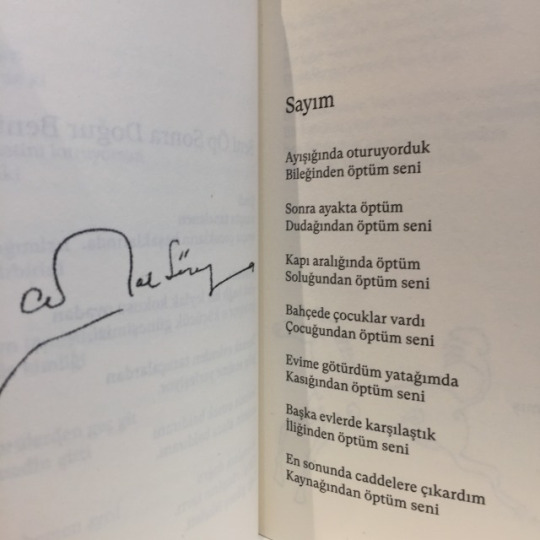 Cemal Süreya
Sayım
Ayışığında oturuyorduk
Bileğinden öptüm seni
Sonra ayakta öptüm
Dudağından öptüm seni
Kapı aralığında öptüm
Soluğundan öptüm seni
Bahçede çocuklar vardı
Çocuğundan öptüm seni
Evime götürdüm yatağımda
Kasığından öptüm seni
Başka evlerde karşılaştık
İliğinden öptüm seni
En sonunda caddelere çıkardım
Kaynağından öptüm seni